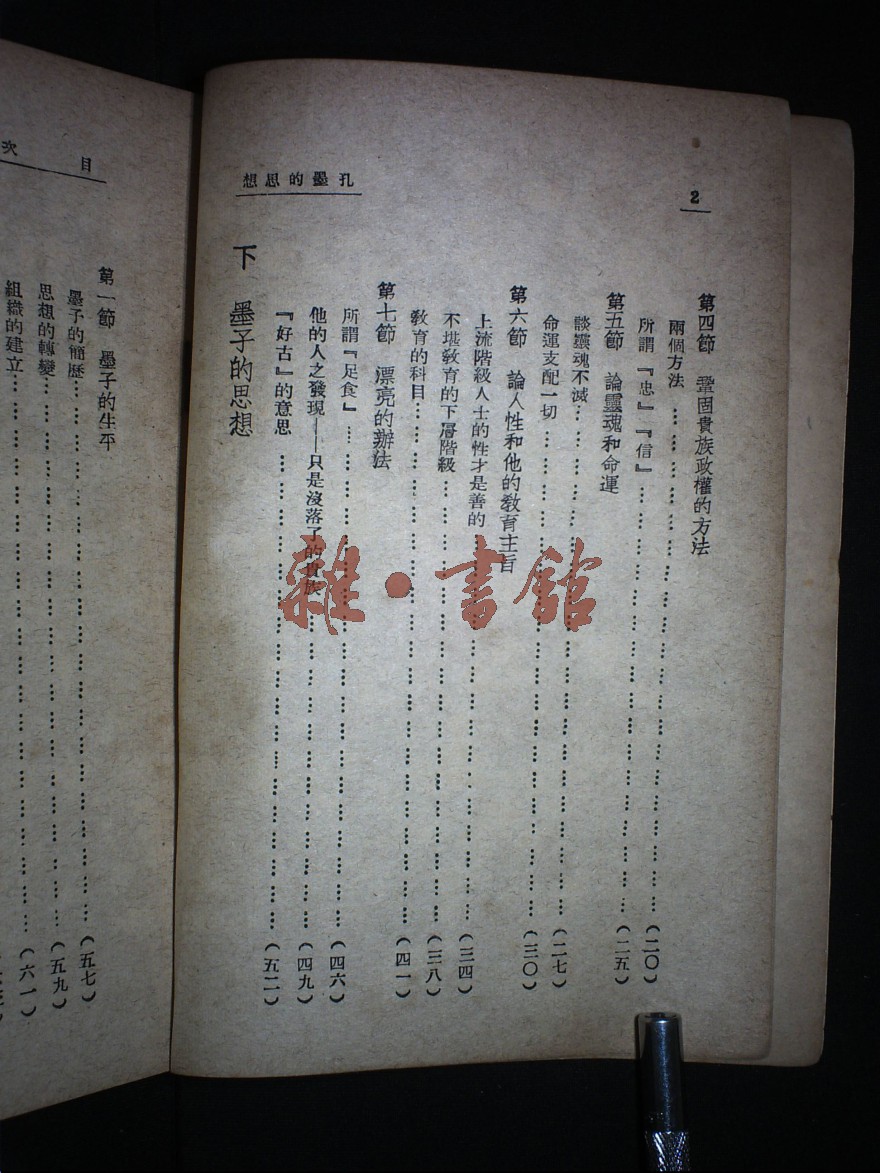 2
孔墨的思想
第四節 鞏固貴族政權的方法
兩個方法……(二〇)
所謂『忠』『信』……(二五)
第五節 論靈魂和命運
談靈魂不滅……(二七)
命運支配一切……(三〇)
第六節 論人性和他的敎育主旨
上流階級人士的性才是善的……(三四)
不堪敎育的下層階級……(三八)
敎育的科目……(四一)
第七節 漂亮的辦法
所謂『足食』……(四六)
他的人之發現——只是沒落了的貴族……(四九)
『好古』的意思……(五二)
下 墨子的思想
目次
第一節 墨子的生平
墨子的簡歷……(五七)
思想的轉變……(五九)
組織的建立……(六一)
雜·書館